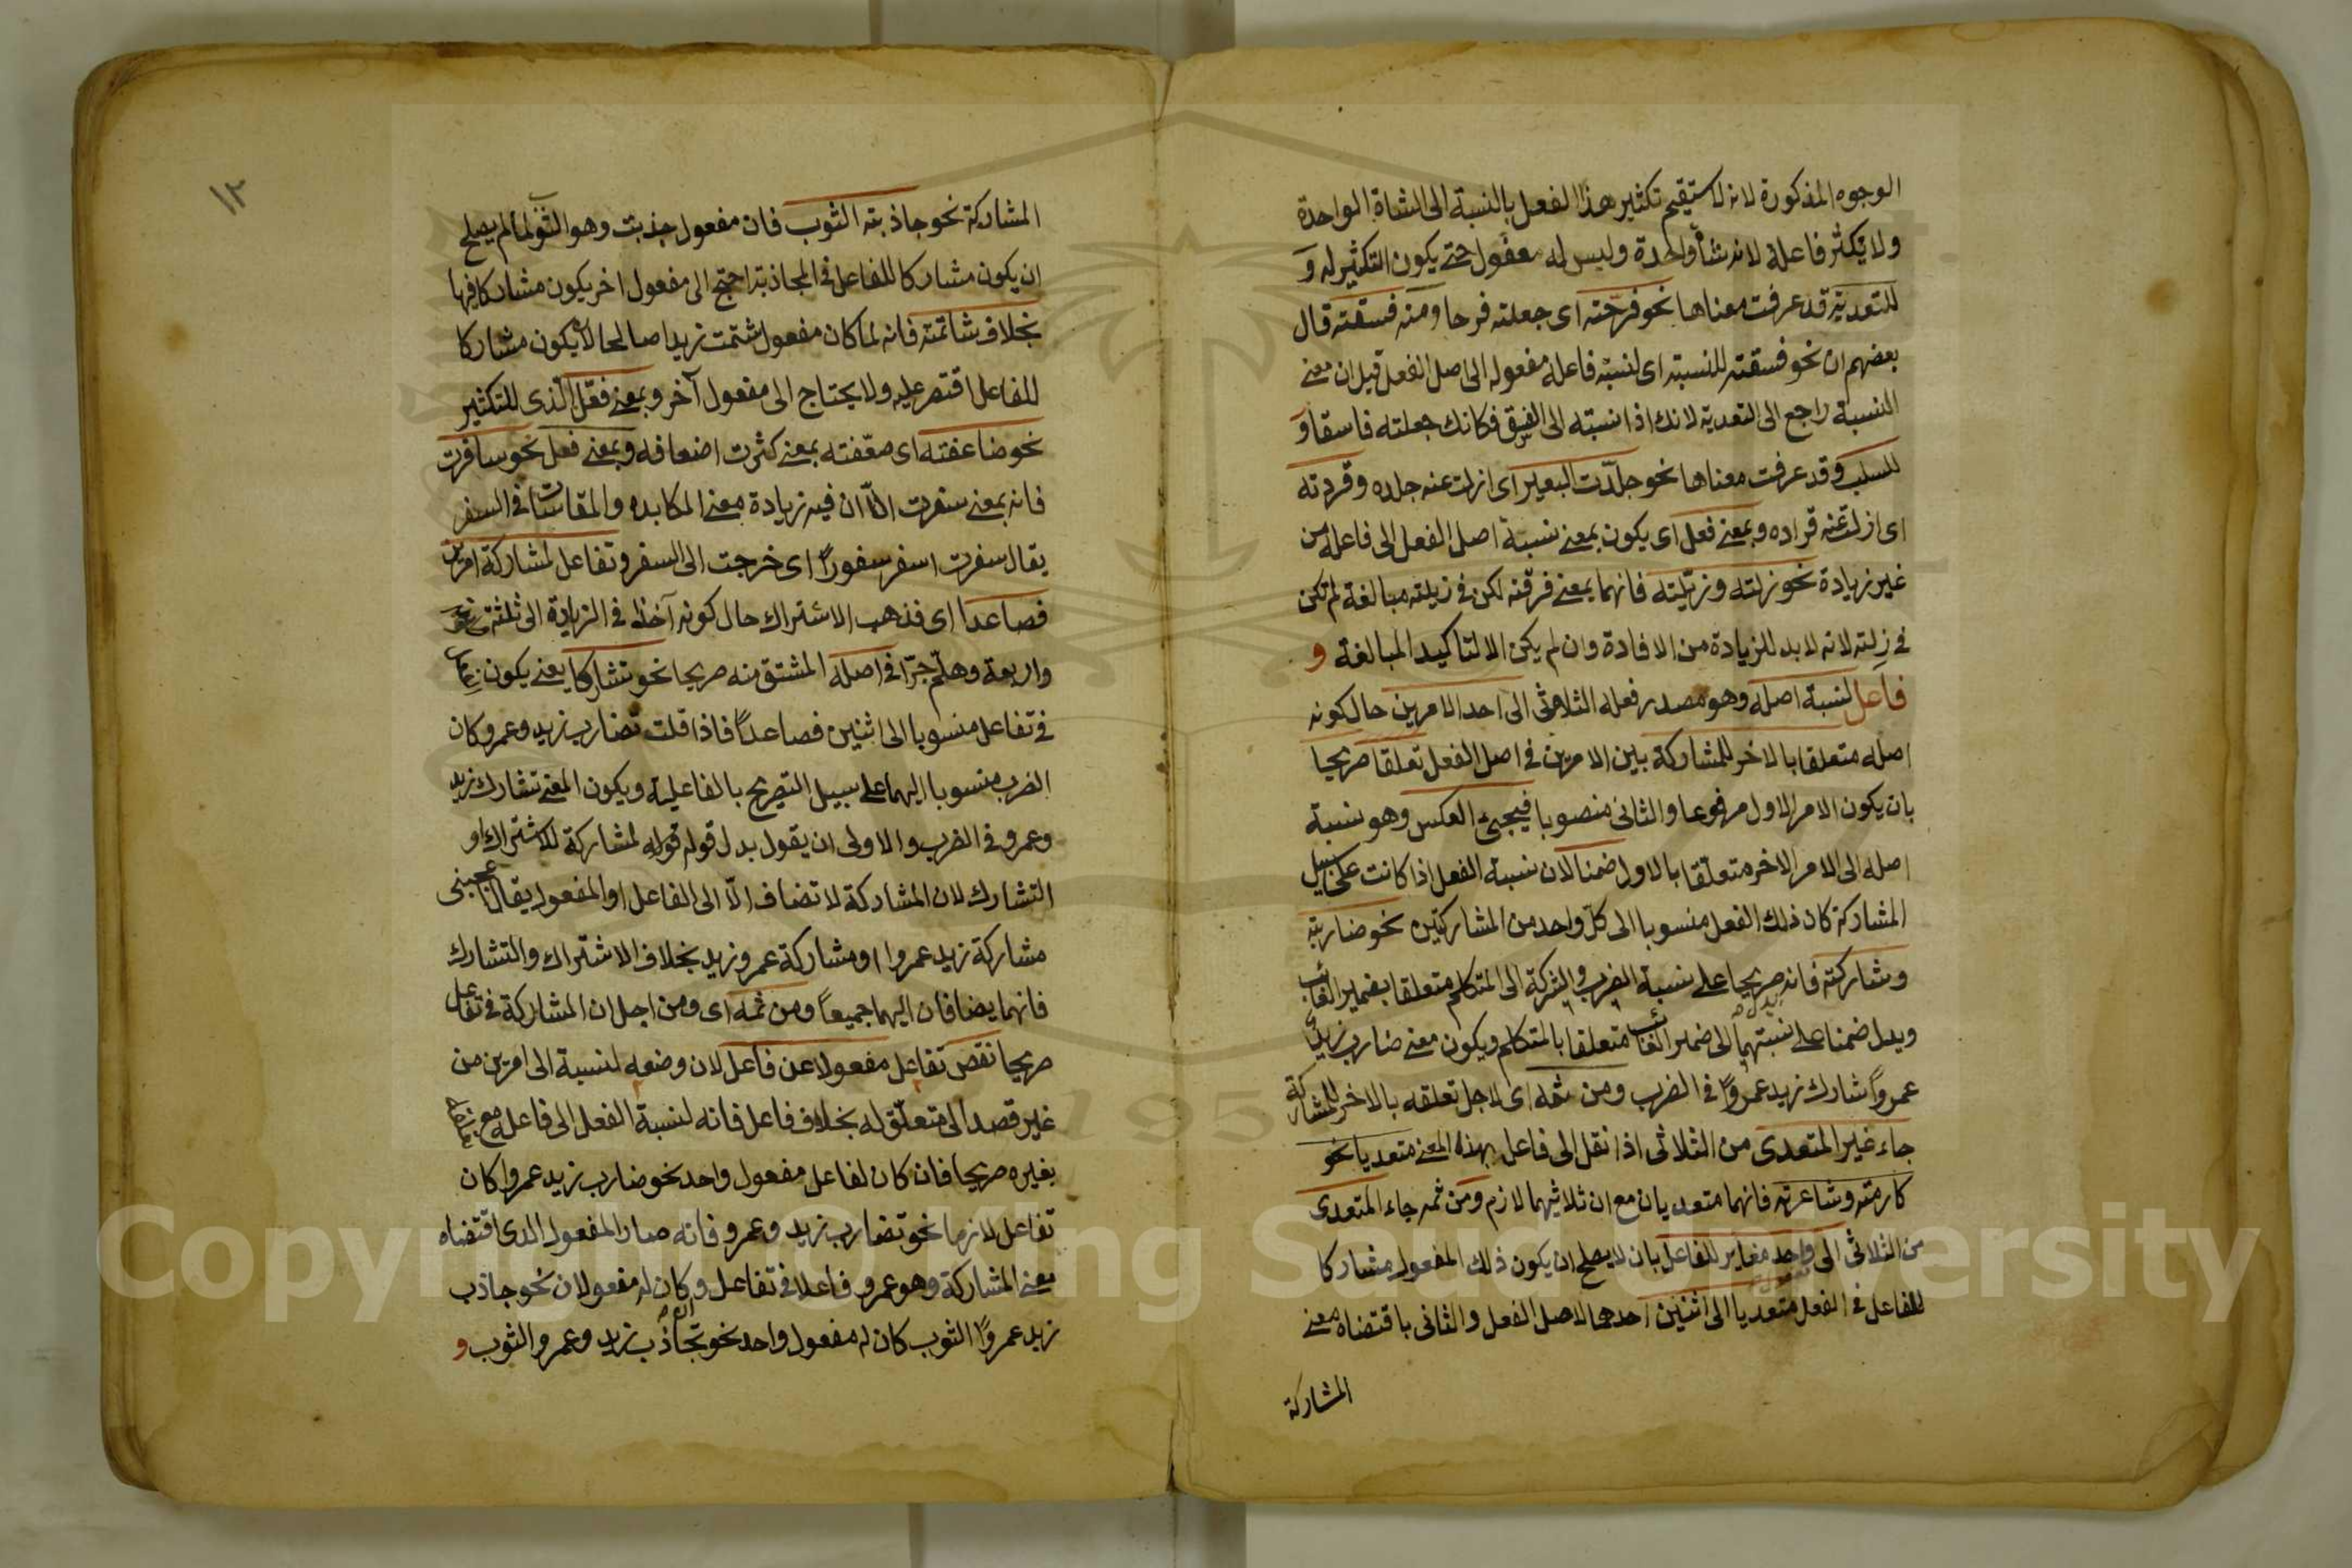 الوجوه المذكورة لانه لا يستقيم تكثير هذا الفعل بالنسبة الى الشاة الواحدة
ولا تكثر فاعله لانه شاة واحدة وليس له مفعول حتى يكون التكثير له و
للتعدية قد عرفت معناها نحو فرحته اى جعلته فرحا ومنه فسقته قال
بعضهم ان نحو فسقته للنسبة اى لنسبة فاعله مفعوله الى اصل الفعل قيل ان معنى
النسبة راجع الى التعدية لانك اذا نسبته الى الفسق فكانك جعلته فاسقا و
للسلب وقد عرفت معناها نحو جلّدت البعير اى ازلت عنه جلده وقردته
اى ازلت عنه قراده وبمعنى فعل اى يكون بمعنى نسبة اصل الفعل الى فاعله من
غير زيادة نحو زلته وزيّلته فانهما بمعنى فرقته لكن فى زيلته مبالغة لم تكن
فى زلته لانه لابد للزيادة من الافادة وان لم يكن الا لتاكيد المبالغة و
فاعل لنسبة اصله وهو مصدر فعله الثلاثى الى احد الامرين حال كونه
اصله متعلقا بالاخر للمشاركة بين الامرين فى اصل الفعل تعلقا صريحا
بان يكون الامر الاول مرفوعا والثانى منصوبا فيجئ العكس وهو نسبة
اصله الى الامر الاخر متعلقا بالاول ضمنا لان نسبة الفعل اذا كانت على سبيل
المشاركة كان ذلك الفعل منسوبا الى كل واحد من المشاركين نحو ضاربته
وشاركته فانه صريحا على نسبة الضرب والشركة الى المتكلم متعلقا بضمير الغائب
يدل
ويدل ضمنا على نسبتهما الى ضمير الغائب متعلقا بالمتكلم ويكون معنى ضارب زيد
عمرواً شارك زيد عمرواً فى الضرب ومن ثمه اى لاجل تعلقه بالاخر للمشاركة
جاء غير المتعدى من الثلاثى اذا نقل الى فاعل بهذه المعنى متعديا نحو
كارمته وشاعرته فانهما متعديان مع ان ثلاثيهما لازم ومن ثمه جاء المتعدى
من الثلاثى الى واحد مغاير للفاعل بان لا يصلح ان يكون ذلك المفعول مشاركا
للفاعل فى الفعل متعديا الى اثنين احدهما لاصل الفعل والثانى باقتضاه معنى
المشاركة
١٣
المشاركة نحو جاذبته الثوب فان مفعول جذبت وهو الثوب لما لم يصلح
ان يكون مشاركا للفاعل فى المجاذبة احتج الى مفعول اخر يكون مشاركا فيها
بخلاف شاتمته فانه لما كان مفعول شتمت زيدا صالحا لان يكون مشاركا
للفاعل اقتصر عليه ولا يحتاج الى مفعول آخر وبمعنى فعّل الذى للتكثير
نحو ضاعفته اى ضعّفته بمعنى كثرت اضعافه وبمعنى فعل نحو سافرت
فانه بمعنى سفرت الّا ان فيه زيادة معنى المكابده والمقاسات فى السفر
يقال سفرت اسفر سفوراً اى خرجت الى السفر وتفاعل لمشاركة امرين
فصاعدا اى فذهب الاشتراك حال كونه آخذا فى الزيادة الى ثلثة
واربعة وهلم جرّا فى اصله المشتق منه صريحا نحو تشاركا يعنى يكون
فى تفاعل منسوبا الى اثنين فصاعداً فاذا قلت تضارب زيد وعمرو كان
الضرب منسوبا اليهما على سبيل التصريح بالفاعلية ويكون المعنى تشارك زيد
وعمرو فى الضرب والاولى ان يقول بدل قوله لمشاركة للاشتراك او
التشارك لان المشاركة لا تضاف الّا الى الفاعل او المفعول يقال اعجبنى
مشاركة زيد عمروا او مشاركة عمرو زيد بخلاف الاشتراك والتشارك
فانهما يضافان اليهما جميعاً ومن ثمه اى ومن اجل ان المشاركة فى تفاعل
صريحا نقص تفاعل مفعولا عن فاعل لان وضعه لنسبة الى امرين من
غير قصد الى متعلّق له بخلاف فاعل فانه لنسبة الفعل الى فاعله مع
بغيره صريحا فان كان لفاعل مفعول واحد نحو ضارب زيد عمروا كان
تفاعل لازما نحو تضارب زيد وعمرو فانه صار المفعول الذى اقتضاه
معنى المشاركة وهو عمرو فاعلا فى تفاعل وكان له مفعولان نحو جاذب
زيد عمرواً الثوب كان له مفعول واحد نحو تجاذب زيد وعمرو الثوب و
Copyright © King Saud University